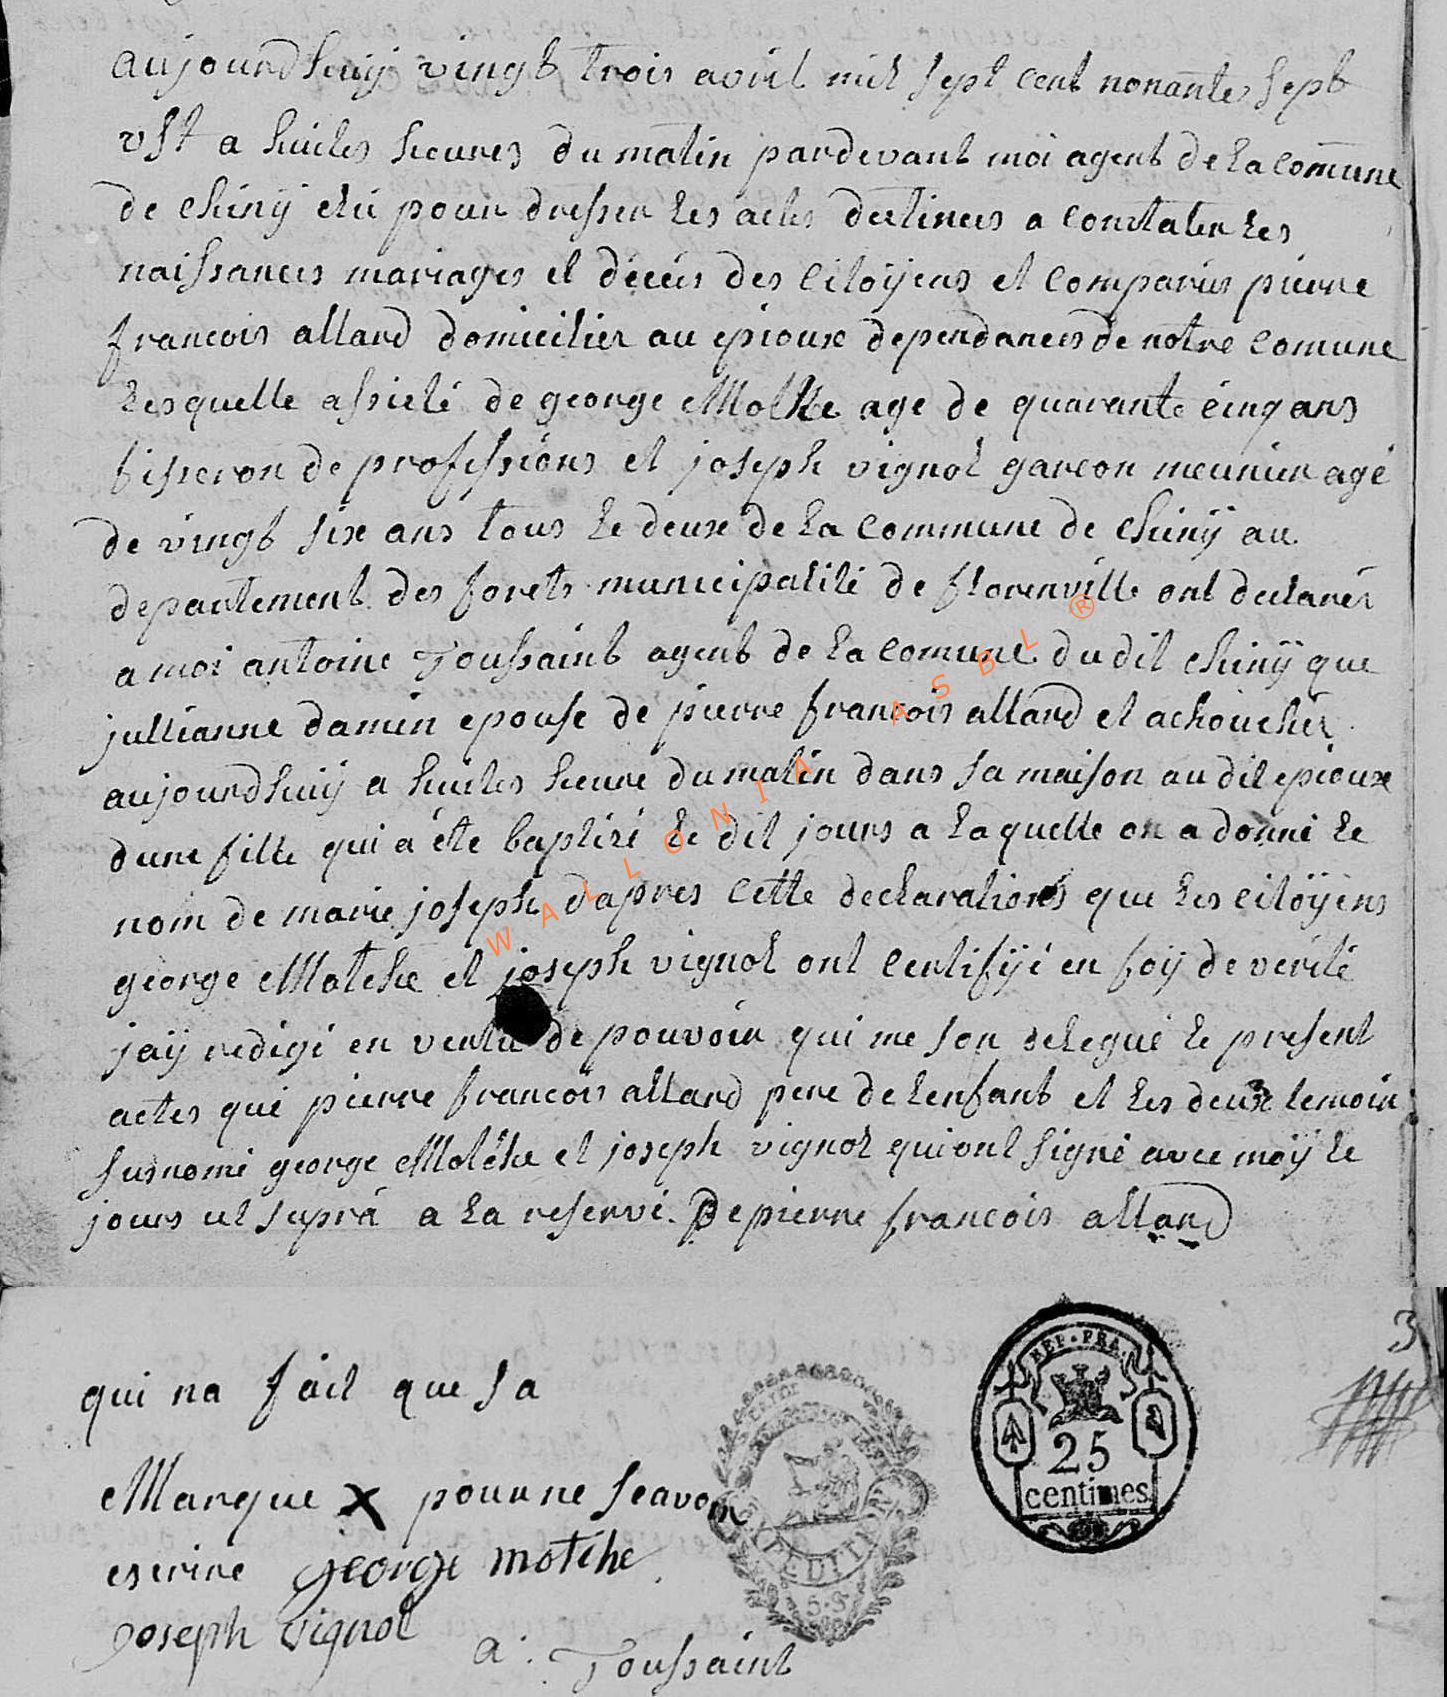 aujourdhuij vingt trois avril mil sept cent nonante sept
vst a huites heures du matin pardevant moi agent de la comune
de chinij elu pour dresser les actes destinees a constater les
naissances mariages et décés des citoijens et comparus pierre
francois allard domicilier au epioux dependances de notre comune
lesquelle assisté de george Motche age de quarante cinq ans
tisseron de professions et joseph vignol garcon meunier agé
de vingt six ans tous le deux de la commune de chinij au
departement des forets municipalité de florenville ont declarés
a moi antoine Toussaint agent de la comune du dit chinij que
jullianne damin epouse de pierre francois allard et achoucher
aujourdhuij a huites heure du matin dans sa maison au dit epioux
dune fille qui a éte baptisé le dit jours a laquelle on a donné le
nom de marie joseph dapres cette declarations que les citoijens
george Motche et joseph vignol ont certifijé en foij de verité
jaij redigé en vertu de pouvoir qui me son delegué le present
actes que pierre francois allard pere de lenfant et les deux temoin
susnomé george Motche et joseph vignol qui ont signé avec moij le
jours ut supra a la reserve. De pierre francois allard
3
qui na fait que sa
Marque x pour ne scavoir
escrire george motche
joseph vignol
a. Toussaint
REP. FRA.
25
centimes
WALLONIA ASBL ®